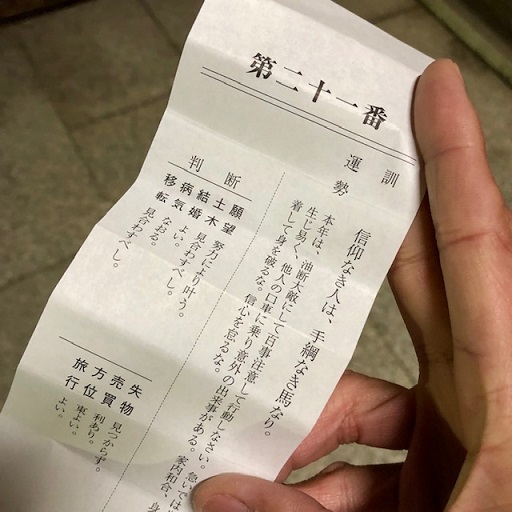 第二十一番
訓
信仰なき人は、手綱なき馬なり。
運勢
本年は、油断大敵にして百事注意して行動しなさい。急いでは
生じ易く、他人の口車に乗り意外の出来事がある。家内和合、身
着して身を破るな。信心を怠るな。
判断
願望 努力により叶う。
土木 見合わすべし。
結婚 よい。
病気 なおる。
移転 見合わすべし。
失物 見つからず。
売買 利あり。
方位 東よい。
旅行 よい。